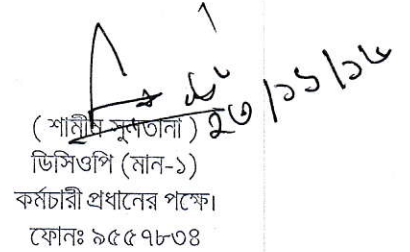 ২৩/১১/১৬
( শামীম সুলতানা )
ডিসিওপি (মান-১)
কর্মচারী প্রধানের পক্ষে।
ফোনঃ ৯৫৫৭৮৩৪